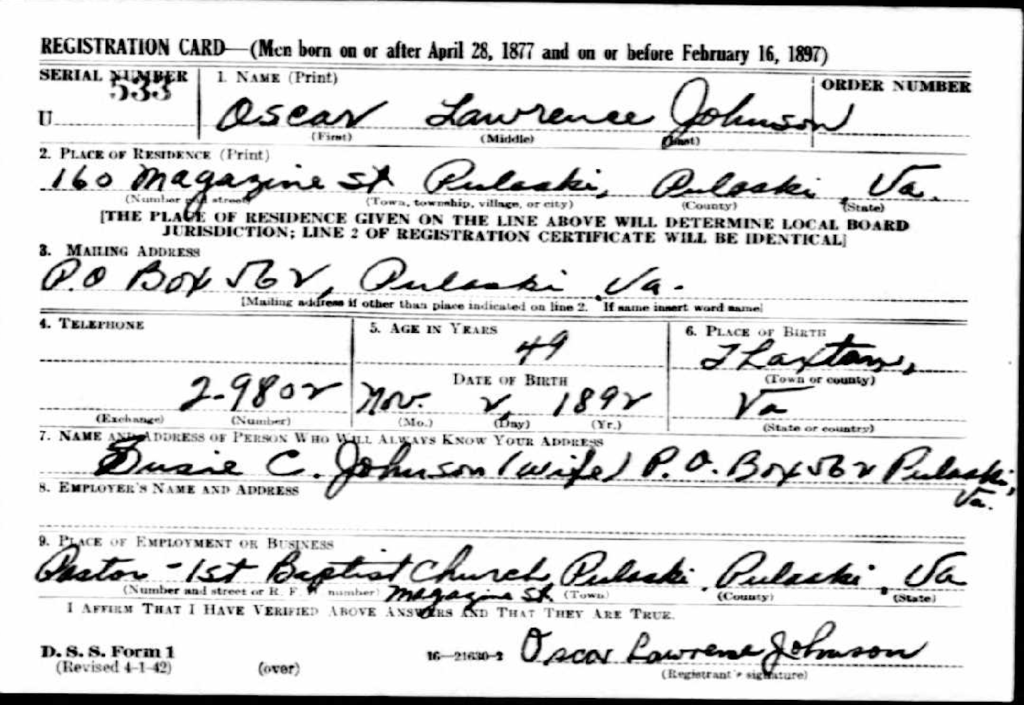 REGISTRATION CARD—(Men born on or after April 28, 1877 and on or before February 16, 1897)
SERIAL NUMBER 1. NAME (Print) ORDER NUMBER
533
U Oscar Lawrence Johnson
(First) (Middle) (Last)
2. PLACE OF RESIDENCE (Print)
160 Magazine St Pulaski, Pulaski Va.
(Number and street) (Town, township, village, or city) (County) (State)
[THE PLACE OF RESIDENCE GIVEN ON THE LINE ABOVE WILL DETERMINE LOCAL BOARD
JURISDICTION; LINE 2 OF REGISTRATION CERTIFICATE WILL BE IDENTICAL]
3. MAILING ADDRESS
P.O Box 562, Pulaski Va.
[Mailing address if other than place indicated on line 2. If same insert word same]
4. TELEPHONE 5. AGE IN YEARS 6. PLACE OF BIRTH
49
DATE OF BIRTH (Town or county)
2-9802 Nov. 2, 1892 Va
(Exchange) (Number) (Mo.) (Day) (Yr.) (State or country)
7. NAME AND ADDRESS OF PERSON WHO WILL ALWAYS KNOW YOUR ADDRESS
Susie C. Johnson (wife) P.O. Box 562 Pulaski,
Va.
8. EMPLOYER'S NAME AND ADDRESS
9. PLACE OF EMPLOYMENT OR BUSINESS
Pastor - 1st Baptist Church, Pulaski, Pulaski, Va
(Number and street or R. F. D. number) Magazine St. (Town) (County) (State)
I AFFIRM THAT I HAVE VERIFIED ABOVE ANSWERS AND THAT THEY ARE TRUE.
D. S. S. Form 1
(Revised 4-1-42) (over) 16—21630-2 Oscar Lawrence Johnson
(Registrant's signature)